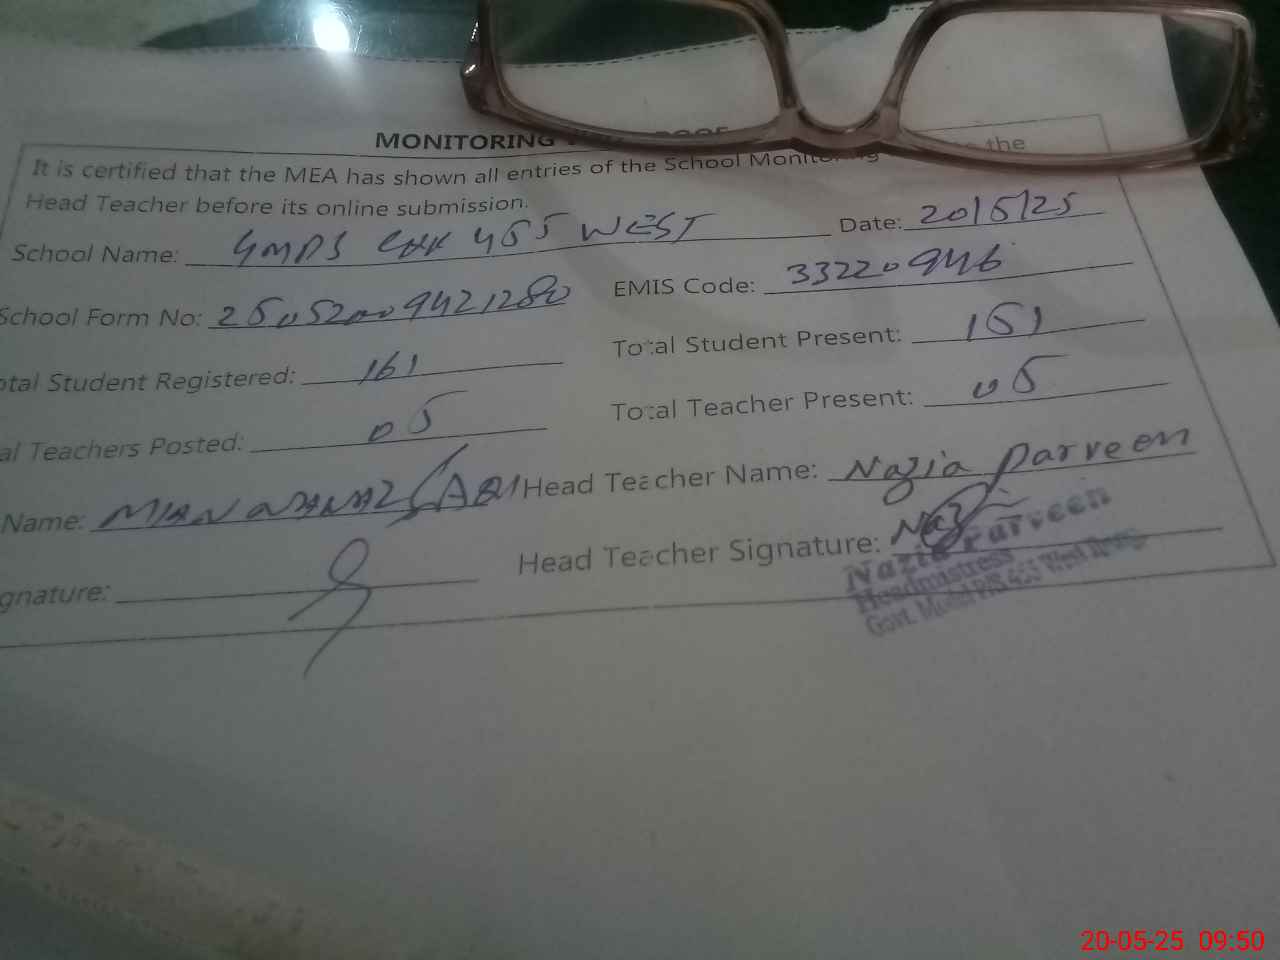 MONITORING
It is certified that the MEA has shown all entries of the School Monitoring the
Head Teacher before its online submission.
School Name: GMPS CHK 455 WEST Date: 20/5/25
School Form No: 25052009421280 EMIS Code: 33220946
Total Student Registered: 161 Total Student Present: 151
Teachers Posted: 05 Total Teacher Present: 05
Name: MIAN Head Teacher Name: Nazia Parveen
Signature: Head Teacher Signature: Nazia
Nazia Parveen
Headmistress
Govt. Model P/S 455 West
20-05-25 09:50